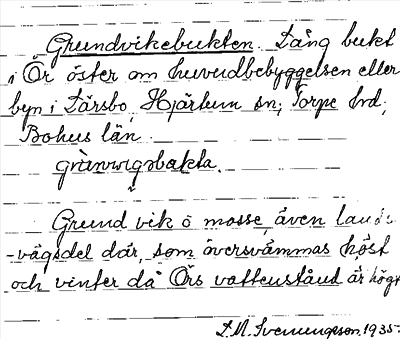 Grundvikebukten. Lång bukt
i Ör öster om huvudbebyggelsen eller
byn i Färsbo, Hjärtum sn, Torpe hd,
Bohus län.
grùnnvigsbakta.
Grund vik o mosse, även lands-
-vägsdel där, som översvämmas höst
och vinter då Örs vattenstånd är högt
L.M. Svenungsson. 1935.